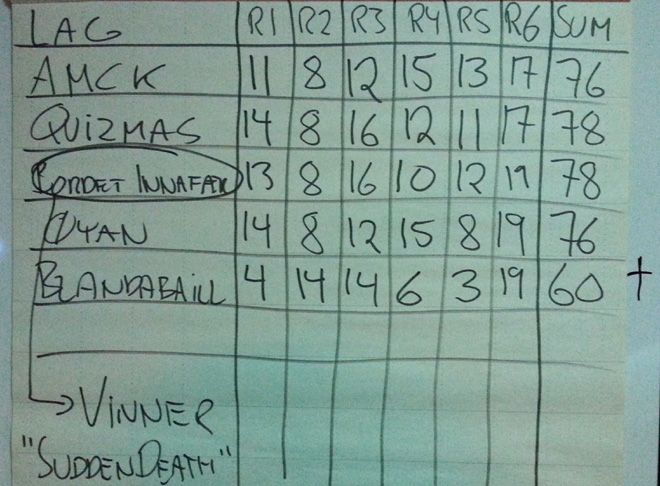 LAG R1 R2 R3 R4 R5 R6 SUM
AMCK 11 8 12 15 13 17 76
QUIZMAS 14 8 16 12 11 17 78
BORDET INNAFAR 13 8 16 10 12 19 78
DYAN 14 8 12 15 8 19 76
BLANDABAILL 4 14 14 6 3 19 60 +
→ VINNER
"SUDDENDEATH"